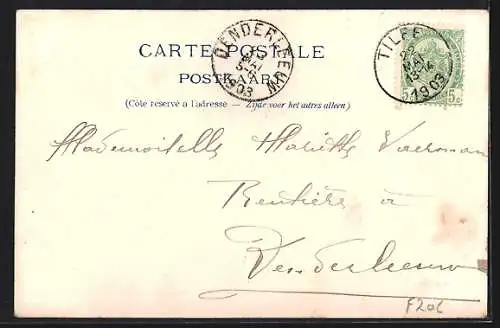 CARTE POSTALE
POSTKAART
(Côté réservé à l'adresse — Zijde voor het adres alleen)
DENDERLEEUW 1903
TILFF 1903
5 5c
Mademoiselle Mariette
Rentière à
Denderleeuw
F206